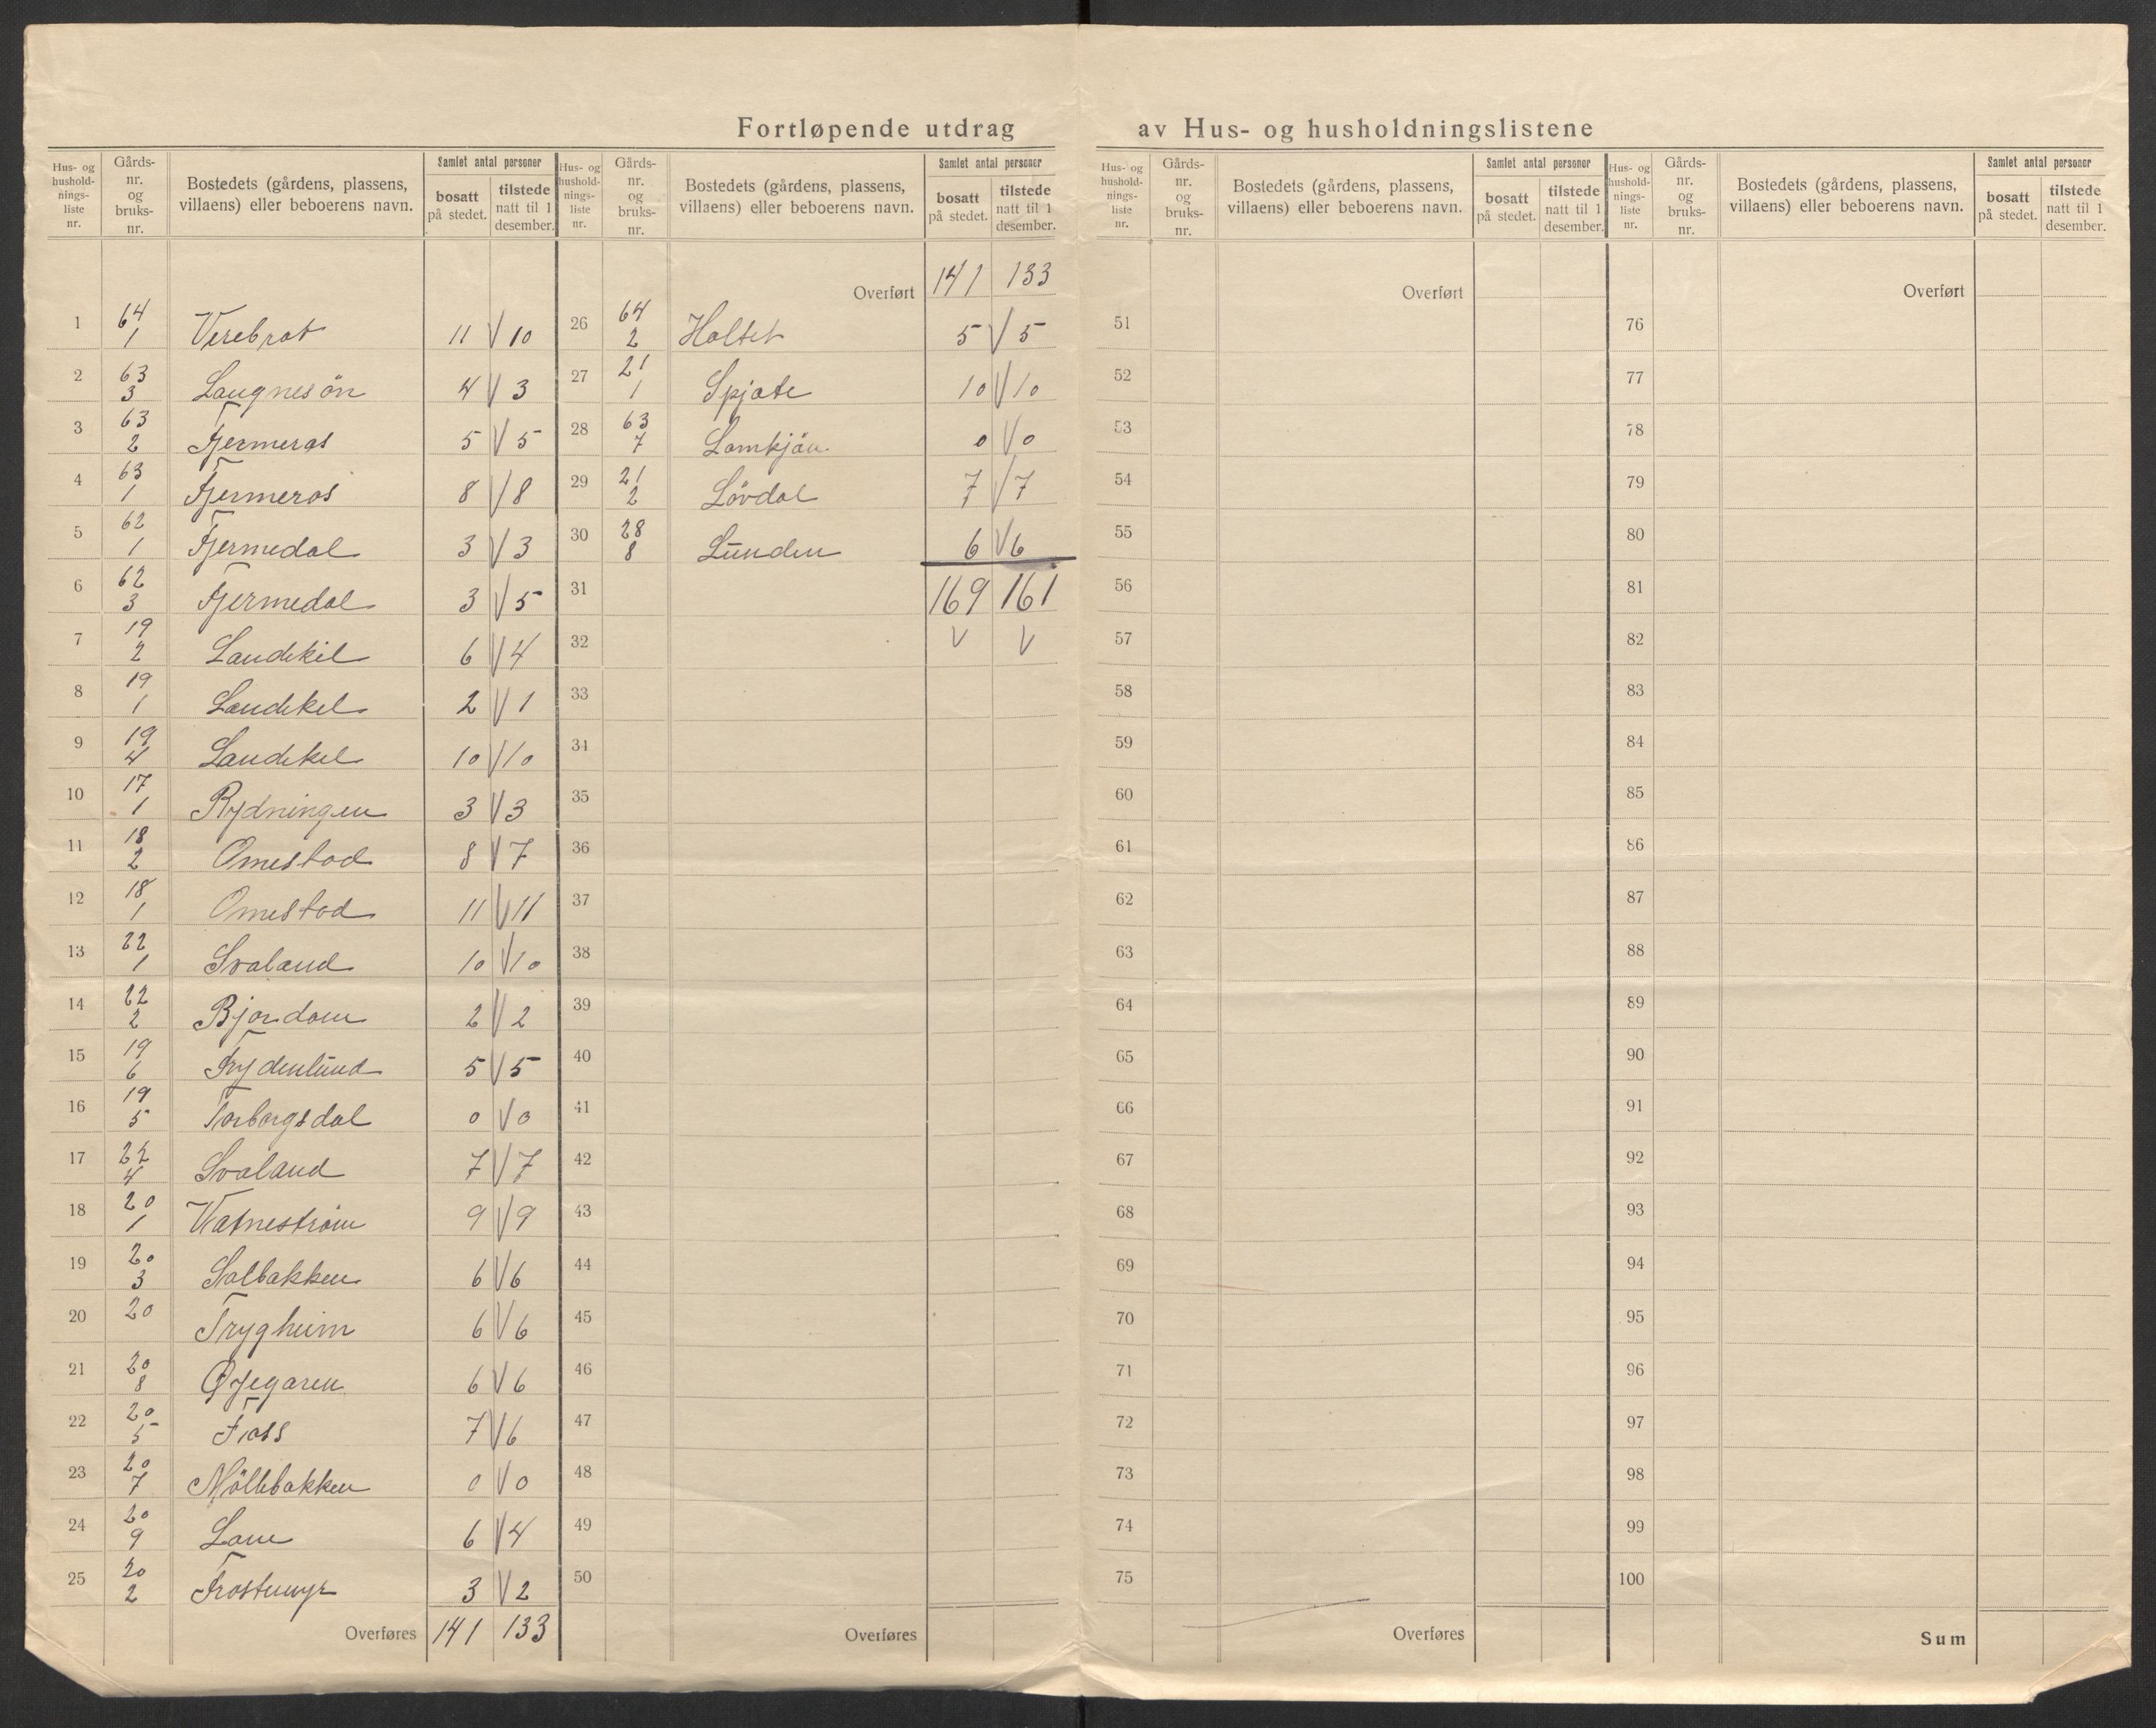 Fortløpende utdrag av Hus- og husholdningslistene
Hus- og husholdningsliste nr. | Gårds-nr. og bruks-nr. | Bostedets (gårdens, plassens, villaens) eller beboerens navn. | Samlet antal personer bosatt på stedet. | tilstede natt til 1 desember.
1 64 1 Verebrot 11 V 10
2 63 3 Laugnesön 4 V 3
3 63 2 Fjermeros 5 V 5
4 63 1 Fjermeros 8 V 8
5 62 1 Fjermedal 3 V 3
6 62 3 Fjermedal 3 V 5
7 19 2 Landekil 6 V 4
8 19 1 Landekil 2 V 1
9 19 4 Landekil 10 V 10
10 17 1 Rydningen 3 V 3
11 18 2 Omestad 8 V 7
12 18 1 Omestad 11 V 11
13 22 1 Svaland 10 V 10
14 22 2 Bjordam 2 V 2
15 19 6 Frydenlund 5 V 5
16 19 5 Torborgsdal 0 V 0
17 22 4 Svaland 7 V 7
18 20 1 Vatneström 9 V 9
19 20 3 Solbakken 6 V 6
20 20 Trygheim 6 V 6
21 20 8 Øyegaren 6 V 6
22 20 5 Foss 7 V 6
23 20 7 Möllebakken 0 V 0
24 20 9 Lane 6 V 4
25 20 2 Frostemyr 3 V 2
Overføres 141 133
Hus- og husholdningsliste nr. | Gårds-nr. og bruks-nr. | Bostedets (gårdens, plassens, villaens) eller beboerens navn. | Samlet antal personer bosatt på stedet. | tilstede natt til 1 desember.
Overført 141 133
26 64 2 Holtet 5 V 5
27 21 1 Spjote 10 V 10
28 63 7 Lomkjän 0 V 0
29 21 2 Lövdal 7 V 7
30 28 8 Lunden 6 V 6
31 169 161
32 V V
33
34
35
36
37
38
39
40
41
42
43
44
45
46
47
48
49
50
Overføres
Hus- og husholdningsliste nr. | Gårds-nr. og bruks-nr. | Bostedets (gårdens, plassens, villaens) eller beboerens navn. | Samlet antal personer bosatt på stedet. | tilstede natt til 1 desember.
Overført
51
52
53
54
55
56
57
58
59
60
61
62
63
64
65
66
67
68
69
70
71
72
73
74
75
Overføres
Hus- og husholdningsliste nr. | Gårds-nr. og bruks-nr. | Bostedets (gårdens, plassens, villaens) eller beboerens navn. | Samlet antal personer bosatt på stedet. | tilstede natt til 1 desember.
Overført
76
77
78
79
80
81
82
83
84
85
86
87
88
89
90
91
92
93
94
95
96
97
98
99
100
Sum